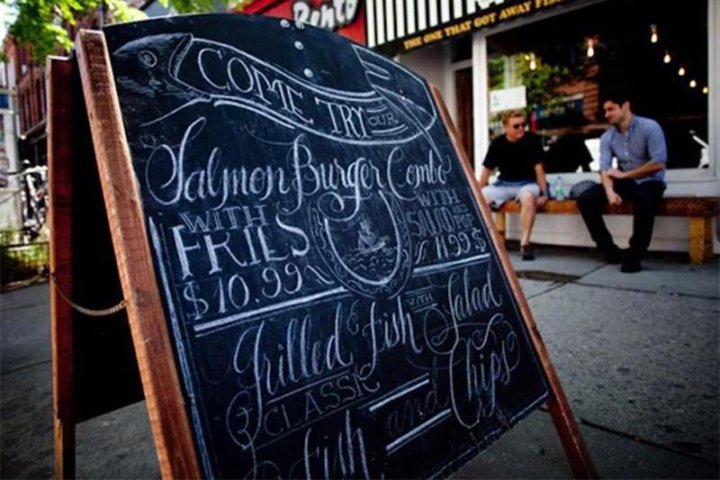 Bento
THE ONE THAT GOT AWAY
COME TRY OUR
Salmon Burger Combo
WITH WITH
FRIES SALAD
$10.99 11.99$
Grilled Fish WITH Salad
& CLASSIC
Fish and Chips